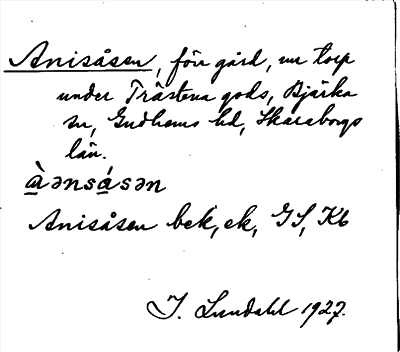 Anisåsen, förr gård, nu torp
under Trästena gods, Bjärka
sn, Gudhems hd, Skaraborgs
län.
å̱̀ənsǻ̱sən
Anisåsen bek, ek, GS, Kb
I. Lundahl 1927.